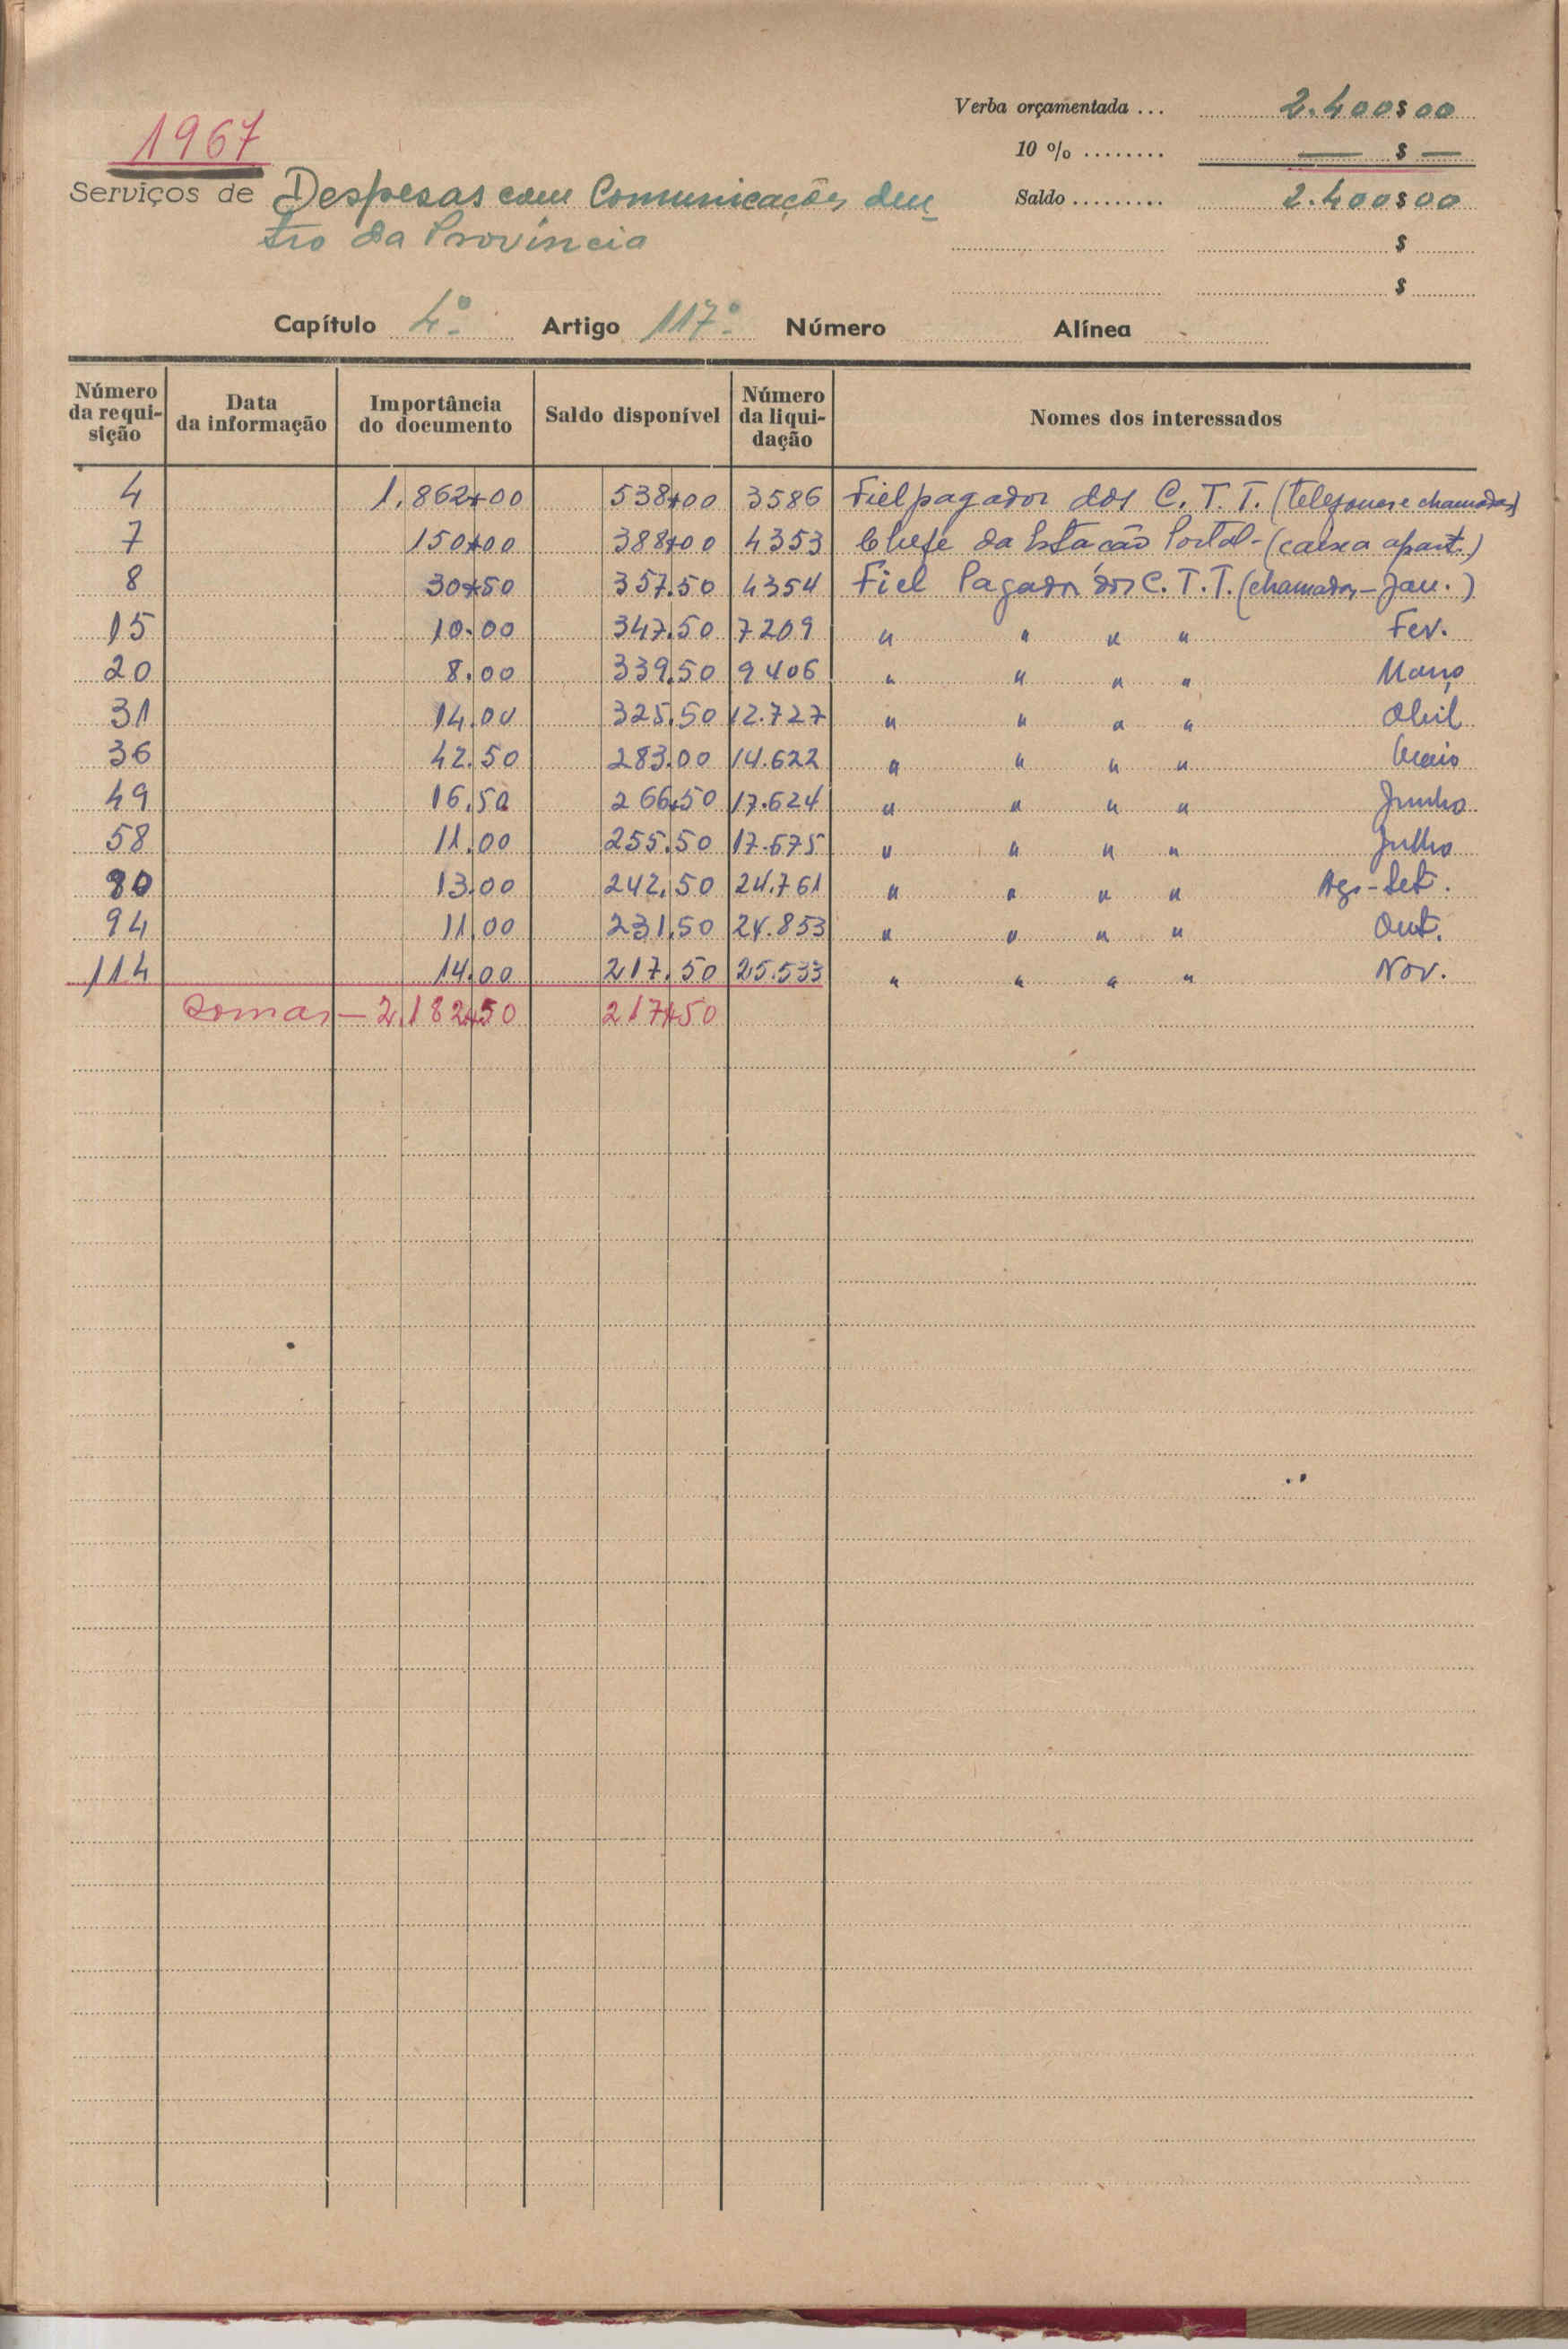 1967
Verba orçamentada ... 2.400$00
10 % ........ — $ —
Serviços de Despesas com Comunicações den-
tro da Província
Saldo ......... 2.400$00
$
$
Capítulo 4º Artigo 117º Número Alínea
Número da requi-sição Data da informação Importância do documento Saldo disponível Número da liqui-dação Nomes dos interessados
4 1.862$00 538$00 3586 Fiel pagador dos C. T. T. (telefones e chamadas)
7 150$00 388$00 4353 Chefe da Estação Postal - (caixa apart.)
8 30$50 357.50 4354 Fiel Pagador dos C. T. T. (chamadas - Jan.)
15 10.00 347.50 7209 " " " " Fev.
20 8.00 339.50 9406 " " " " Março
31 14.00 325.50 12.727 " " " " Abril
36 42.50 283.00 14.622 " " " " Maio
49 16.50 266.50 17.624 " " " " Junho
58 11.00 255.50 17.675 " " " " Julho
80 13.00 242.50 24.761 " " " " Ago-Set.
94 11.00 231.50 24.853 " " " " Out.
114 14.00 217.50 25.533 " " " " Nov.
Somas — 2.182$50 217$50